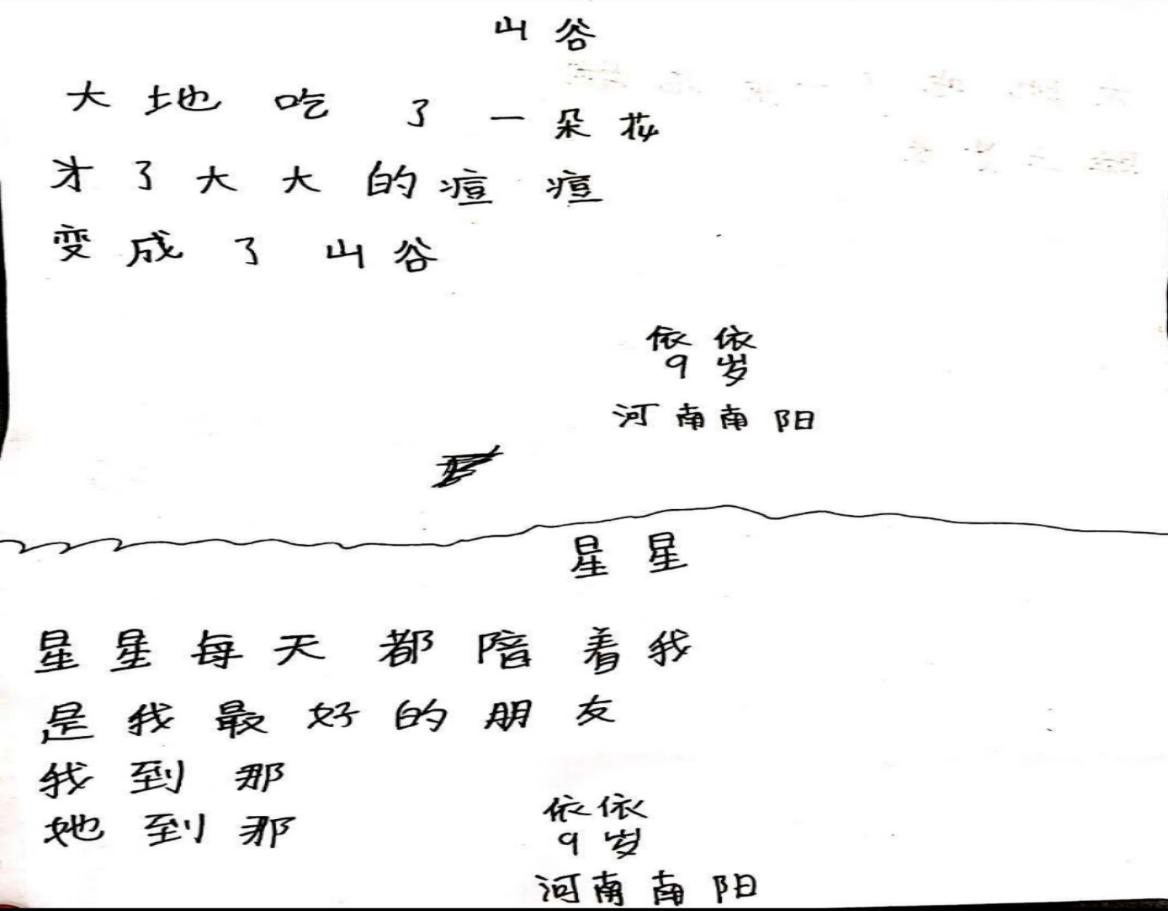 山谷
大地吃了一朵花
长了大大的痘痘
变成了山谷
依依
9岁
河南南阳
星星
星星每天都陪着我
是我最好的朋友
我到那
她到那
依依
9岁
河南南阳